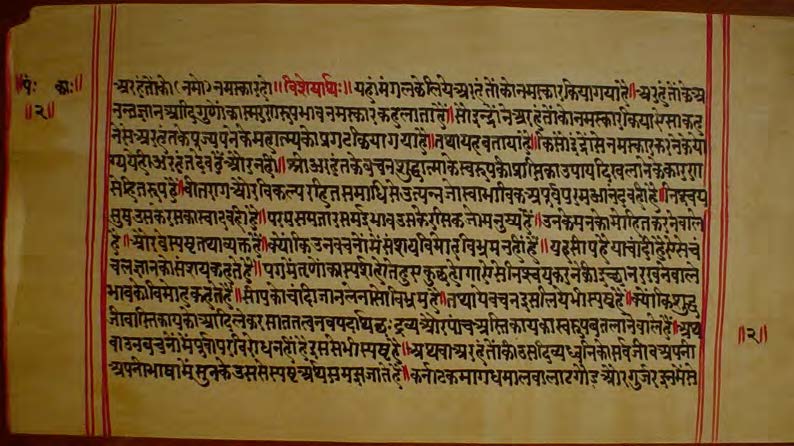 ॥पं: का:॥
॥२॥
अरहंतोंको (नमो) नमस्कारहो॥ ॥विशेषार्थः॥ यहां मंगलकेलिये अरहंतोंको नमस्कार कियागयाहै॥ अरहंतोंके अ
नन्तज्ञान आदि गुणोंका स्मरणरूप भाव नमस्कार कहलाताहै॥ सो इन्द्रोंने अरहंतोंको नमस्कार किया
नेसे अरहंतके पूज्यपनेका महात्म्यको प्रगट कियागयाहै॥ तथा यह बताया है॥
अरहंतदेव है और नही है॥ के वचन शुद्धात्मीक स्वरूपकी प्राप्तिका उपाय दिखलानेके कारण
सेहितरूप है॥ वीतराग और विकल्परहित समाधिसे उत्पन्न जो स्वाभाविक अपूर्व परम आनंद वही है॥ निश्चय
सुख उसके रसका स्वाद वही है॥ परम समतारसमई भाव उनके मनको मोहित करनेवाले
है॥ और वे स्पष्ट तथा व्यक्त है॥ क्योंकि उन वचनोंमे संशय विमोह विभ्रम नहीं है॥ यह सीप है या चांदी है ऐसे चं
चल ज्ञानको संशय कहते है॥ पगमे तृणोंका स्पर्श होते हुए कुछ होगा ऐसे निश्चय करनेकी इच्छा न रखनेवाले
भावको विमोह कहते है॥ सीपको चांदी जानलेना सो विभ्रम है॥ तथा ये वचन इसलिये भी स्पष्ट है॥ क्योंकि शुद्ध
जीवास्तिकायको आदि लेकर सात तत्व नव पदार्थ छः द्रव्य और पांच अस्तिकायका स्वरूप बतलानेवाले है॥ अथ
वा उन वचनोंमे पूर्वापर विरोध नहीं है इससे भी स्पष्ट है॥ अथवा अरहंतोंकी दिव्यध्वनिको सर्व जीव अपनी
अपनी भाषामे सुनके उससे स्पष्ट अर्थ समझजाते है॥ कर्नाटक मागध मालवा लाट गौड और गुर्जर इनमेसे
॥२॥